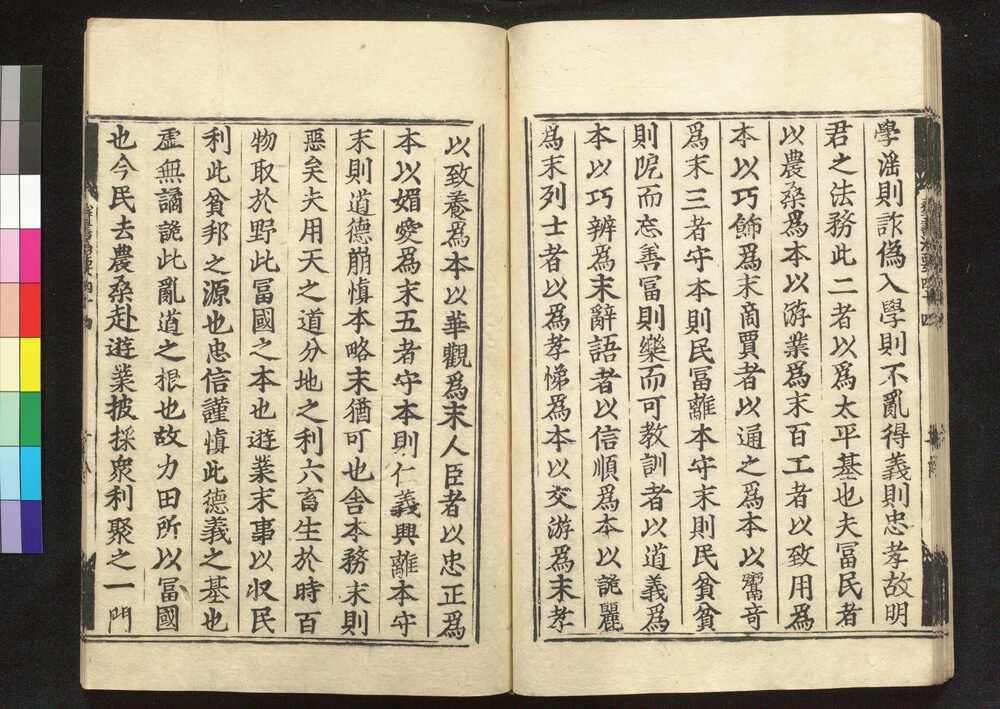 學滛則詐偽入學則不亂得義則忠孝故明
君之法務此二者以爲太平基也夫冨民者
以農桑爲本以游業爲末百工者以致用爲
本以巧餙爲末商賈者以通之爲本以鬻奇
爲末三者守本則民冨離本守末則民貧貧
則阨而忘善冨則樂而可教訓者以道義爲
本以巧辨爲末辭語者以信順爲本以詭麗
爲末列士者以爲孝悌爲本以交游爲末孝
以致養爲本以華觀爲末人臣者以忠正爲
本以媚愛爲末五者守本則仁義興離本守
末則道德崩愼本略末猶可也舎本務末則
惡矣夫用天之道分地之利六畜生於時百
物取於野此冨國之本也遊業末事以収民
利此貧邦之源也忠信謹愼此德義之基也
虛無譎詭此亂道之根也故力田所以冨國
也今民去農桑赴遊業披採衆利聚之一門